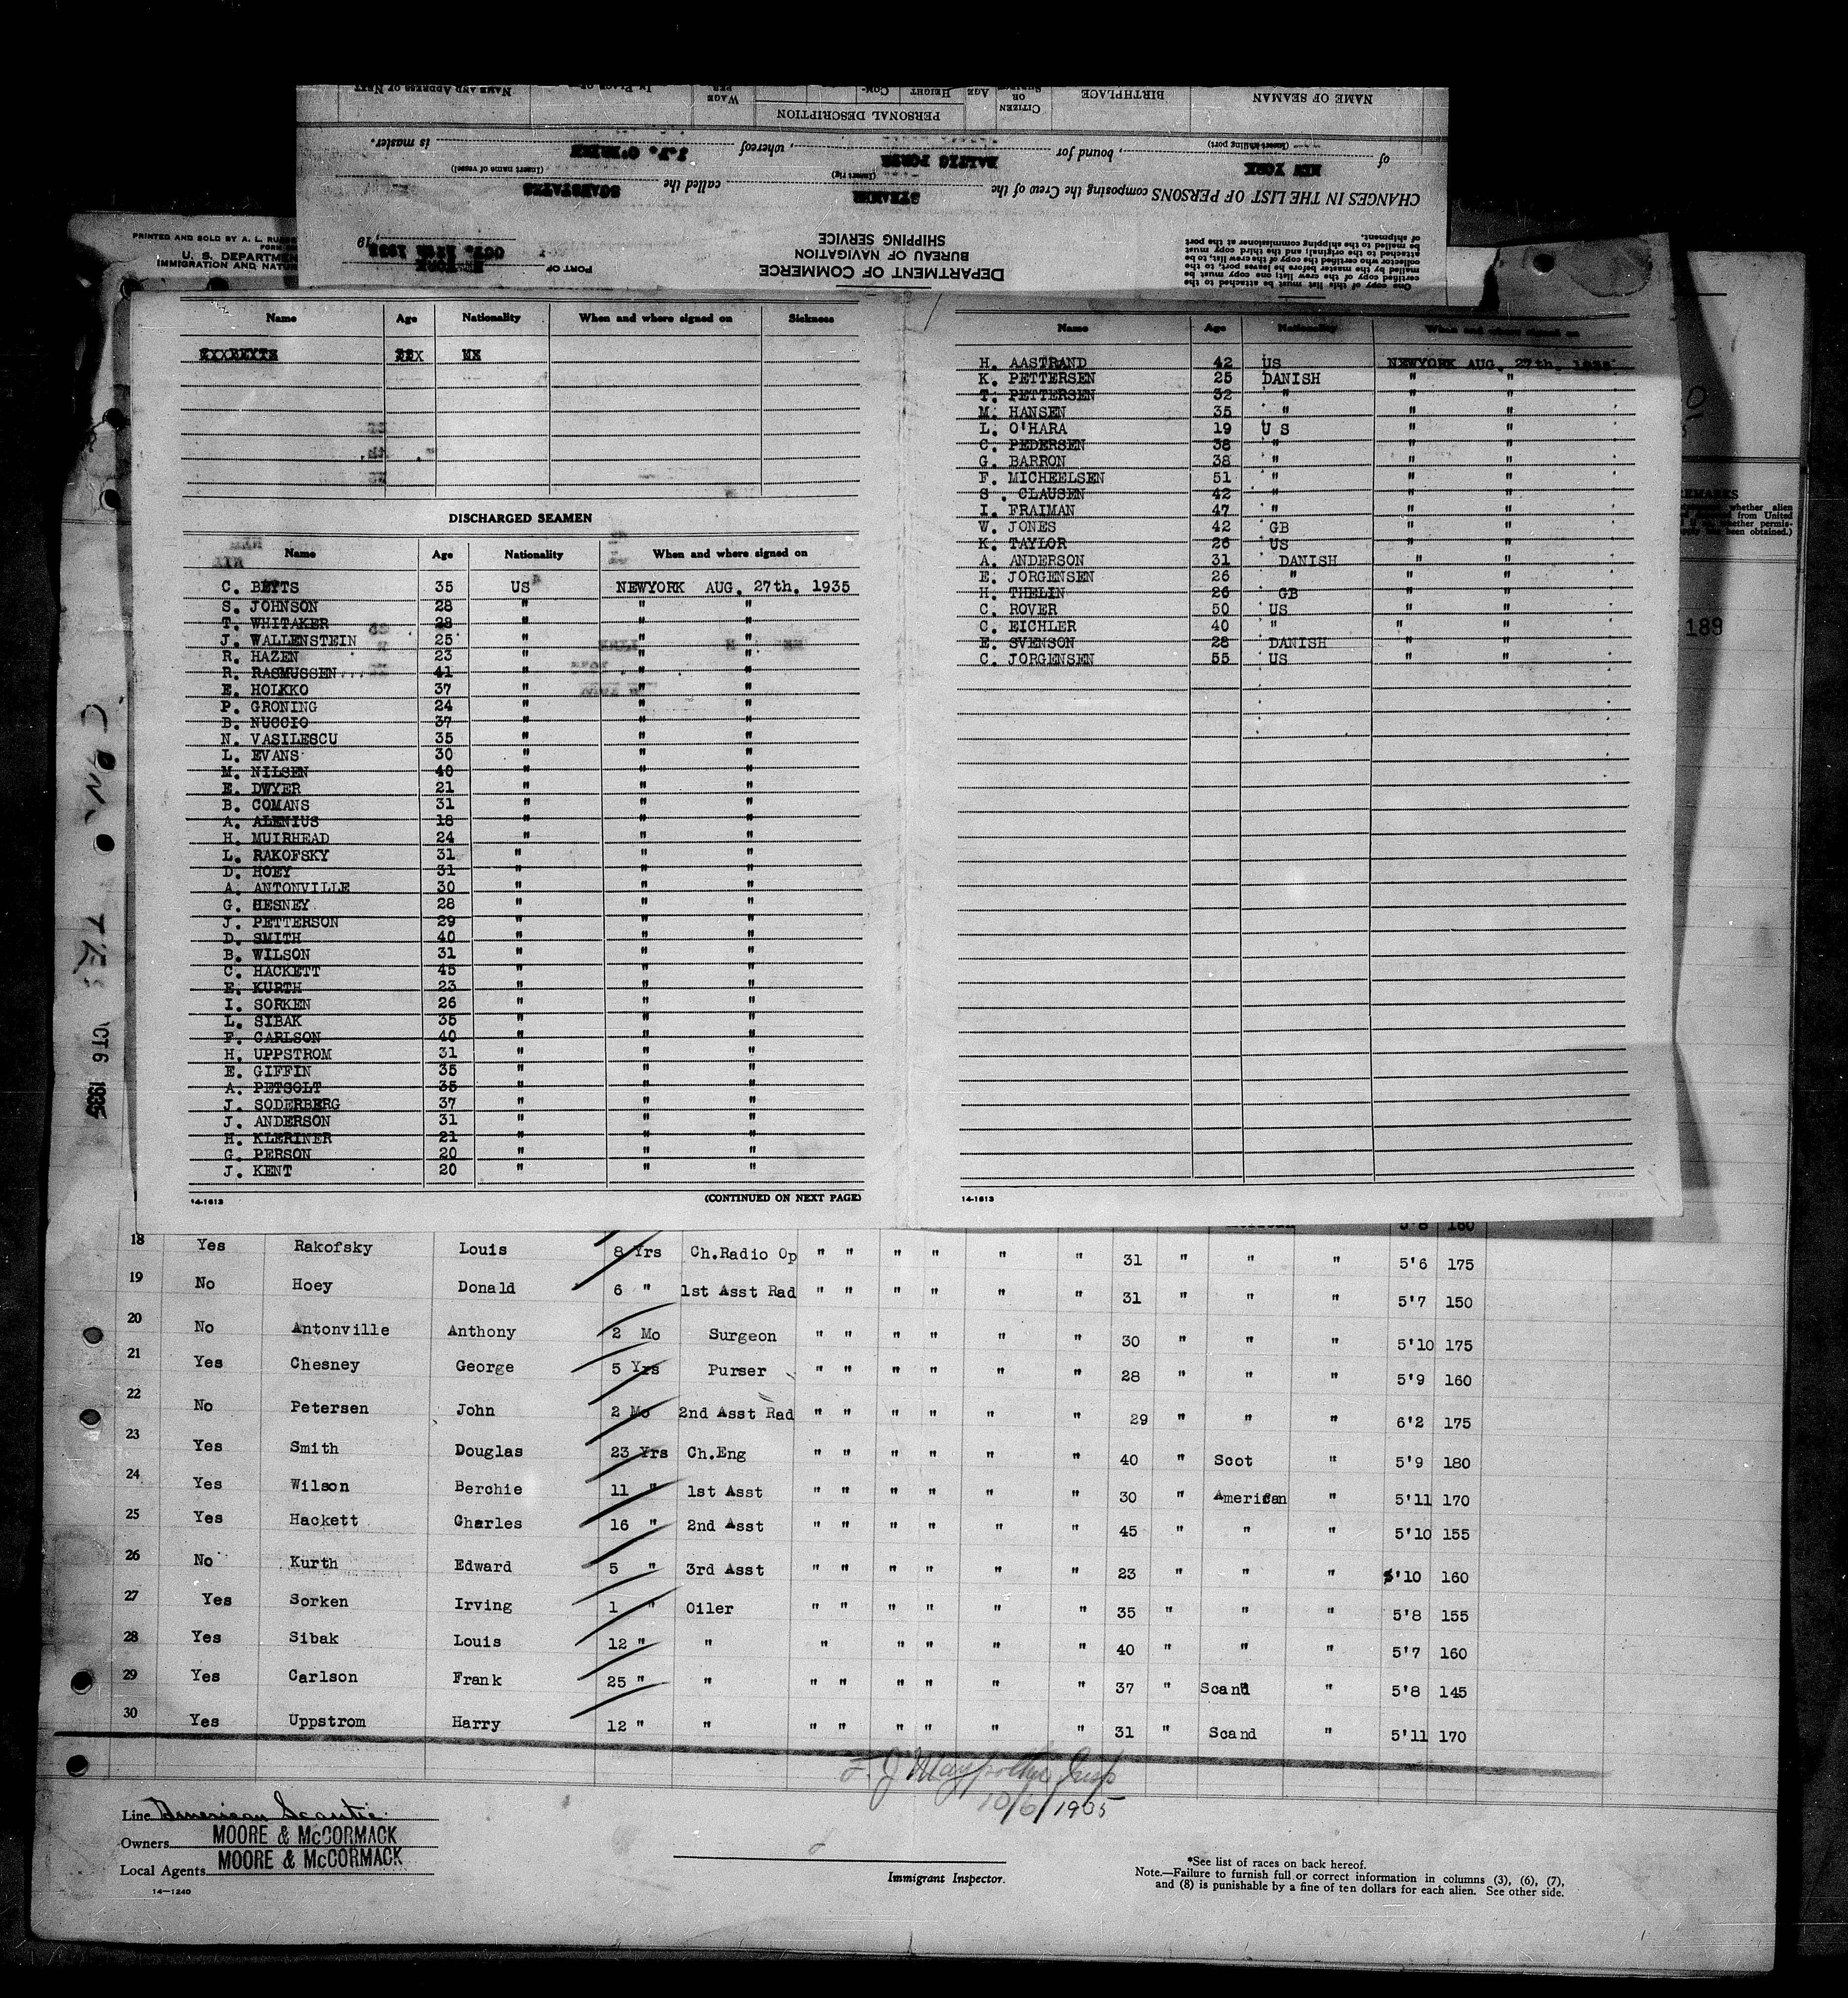 NAME OF SEAMAN BIRTHPLACE CITIZEN OR AGE HEIGHT WAGE PER NAME AND ADDRESS OF NEXT
PERSONAL DESCRIPTION
of NEW YORK (Insert port) , bound for BALTIC PORTS , whereof J.J. O'BRIEN is master.
CHANGES IN THE LIST OF PERSONS composing the Crew of the STEAMER (Insert rig) called the SCANSTATES (Insert name of vessel)
DEPARTMENT OF COMMERCE
BUREAU OF NAVIGATION
SHIPPING SERVICE
PORT OF
OCT. 1935
, 19
One copy of this list must be attached to the
certified copy of the crew list; one copy must be
mailed by the master before he leaves port, to the
collector who certified the copy of the crew list, to be
attached to the original; and the third copy must
be mailed to the shipping commissioner at the port
of shipment.
PRINTED AND SOLD BY A. L.
FORM
U. S. DEPARTMEN
IMMIGRATION AND NATUR
Name Age Nationality When and where signed on Sickness
DISCHARGED SEAMEN
Name Age Nationality When and where signed on
C. BEYTS 35 US NEWYORK AUG. 27th. 1935
S. JOHNSON 28 " " "
T. WHITAKER 28 " " "
J. WALLENSTEIN 25 " " "
R. HAZEN 23 " " "
R. RASMUSSEN 41 " " "
E. HOLKKO 37 " " "
P. GRONING 24 " " "
B. NUCCIO 37 " " "
N. VASILESCU 35 " " "
L. EVANS 30 " " "
M. NILSEN 40 " " "
E. DWYER 21 " " "
B. COMANS 31 " " "
A. ALENIUS 18 " " "
H. MUIRHEAD 24 " " "
L. RAKOFSKY 31 " " "
D. HOEY 31 " " "
A. ANTONVILLE 30 " " "
G. HESNEY 28 " " "
J. PETTERSON 29 " " "
D. SMITH 40 " " "
B. WILSON 31 " " "
C. HACKETT 45 " " "
E. KURTH 23 " " "
I. SORKEN 26 " " "
L. SIBAK 35 " " "
F. CARLSON 40 " " "
H. UPPSTROM 31 " " "
E. GIFFIN 35 " " "
A. PETSOLT 35 " " "
J. SODERBERG 37 " " "
J. ANDERSON 31 " " "
H. KLERINER 21 " " "
G. PERSON 20 " " "
J. KENT 20 " " "
14-1613 (CONTINUED ON NEXT PAGE)
Name Age Nationality When and where signed on
H. AASTRAND 42 US NEWYORK AUG. 27th. 1935
K. PETTERSEN 25 DANISH " "
T. PETTERSEN 32 " " "
M. HANSEN 35 " " "
L. O'HARA 19 U S " "
C. PEDERSEN 38 " " "
G. BARRON 38 " " "
F. MICHEELSEN 51 " " "
S . CLAUSEN 42 " " "
I. FRAIMAN 47 " " "
W. JONES 42 GB " "
K. TAYLOR 26 US " "
A. ANDERSON 31 DANISH " "
E. JORGENSEN 26 " " "
H. THELIN 26 GB " "
C. ROVER 50 US " "
C. EICHLER 40 " " "
E. SVENSON 28 DANISH " "
C. JORGENSEN 55 US " "
14-1613
REMARKS
whether alien
from United
whether permis-
been obtained.)
189
OCT 6 1935
5'8 160
18 Yes Rakofsky Louis 8 Yrs Ch.Radio Op " " " " " " 31 " " " 5'6 175
19 No Hoey Donald 6 " 1st Asst Rad " " " " " " 31 " " " 5'7 150
20 No Antonville Anthony 2 Mo Surgeon " " " " " " 30 " " " 5'10 175
21 Yes Chesney George 5 Yrs Purser " " " " " " 28 " " " 5'9 160
22 No Petersen John 2 Mo 2nd Asst Rad " " " " " " 29 " " " 6'2 175
23 Yes Smith Douglas 23 Yrs Ch.Eng " " " " " " 40 " Scot " 5'9 180
24 Yes Wilson Berchie 11 " 1st Asst " " " " " " 30 " American " 5'11 170
25 Yes Hackett Charles 16 " 2nd Asst " " " " " " 45 " " " 5'10 155
26 No Kurth Edward 5 " 3rd Asst " " " " " " 23 " " " 5'10 160
27 Yes Sorken Irving 1 " Oiler " " " " " " 35 " " " 5'8 155
28 Yes Sibak Louis 12 " " " " " " " 40 " " " 5'7 160
29 Yes Carlson Frank 25 " " " " " " " " 37 " Scand " 5'8 145
30 Yes Uppstrom Harry 12 " " " " " " " " 31 " Scand " 5'11 170
10/6/1935
Line American Scantic
Owners MOORE & McCORMACK
Local Agents MOORE & McCORMACK
14-1240
Immigrant Inspector.
*See list of races on back hereof.
Note.—Failure to furnish full or correct information in columns (3), (6), (7),
and (8) is punishable by a fine of ten dollars for each alien. See other side.